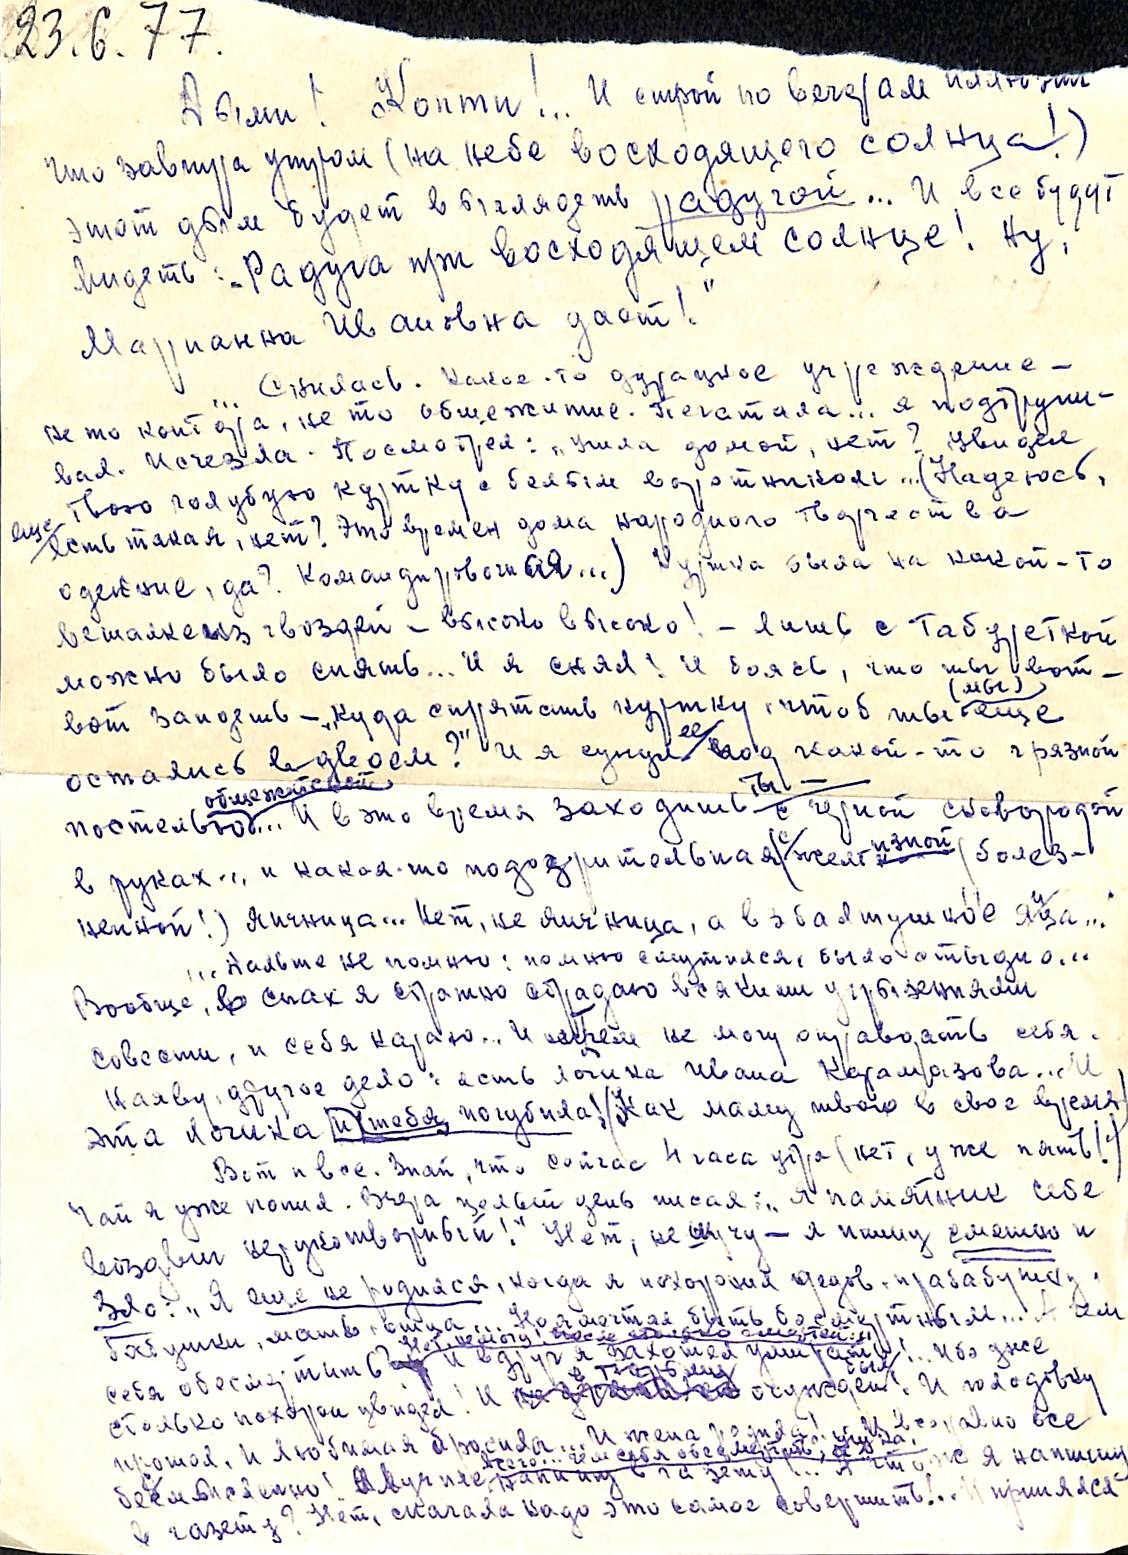 23.6.77.
Дыми! Копти!... И строй по вечерам иллюзии
что завтра утром (на небе восходящего солнца!)
этот дым будет выглядеть радугой... И все будут
видеть: „Радуга при восходящем солнце! Ну,
Марианна Ивановна дает!"
... Снилась. Какое-то дурацкое учреждение –
не то контора, не то общежитие. Печатала... я подтруни-
вал. Исчезла. Посмотрел: „Ушла домой, нет? Увидел
Твою голубую куртку с белым воротником... (Надеюсь,
еще есть такая, нет? Это времен дома народного творчества
одеяние, да? Командировочная...) Куртка была на какой-то
вешалке из гвоздей – высоко высоко! – лишь с табуреткой
можно было снять... И я снял! И боясь, что ты вот-
вот зайдешь – „Куда спрятать куртку, чтоб ты (мы) еще
остались вдвоем?" И я сунул ее под какой-то грязной
общежитской постелью... И в это время заходишь ты – с черной сковородой
в руках... и какая-то подозрительная (с желтизной (болез-
ненной!) яичница... Нет, не яичница, а взбалтушные яйца...
... Дальше не помню: помню смутился, было стыдно...
Вообще, во снах я страшно страдаю всякими угрызениями
совести, и себя караю... И ничем не могу оправдать себя.
Наяву, другое дело: есть логика Ивана Карамазова... И
эта логика и тебя погубила! (Как маму твою в свое время)
Вот и все. Знай, что сейчас 4 часа утра (нет, уже пять!)
Чай я уже попил. Вчера целый день писал: „Я памятник себе
воздвиг нерукотворный!" Нет, не шучу – я пишу смешно и
зло: „Я еще не родился, когда я похоронил дедов, прабабушку,
бабушку, мать, отца... Но я мечтал быть бессмертным... А чем
себя обессмертить? Нет, не могу, после столько смертей!.. И вдруг я захотел умирать!.. Ибо уже
столько похорон увидел! И в тюрьму был осужден! И голодовку
прошел, И любимая бросила... И жена родила! И все равно все
бессмысленно! Лучше напишу в газету!... А что ж я напишу
в газету? Нет, сначала надо это самое совершить!.. И принялся